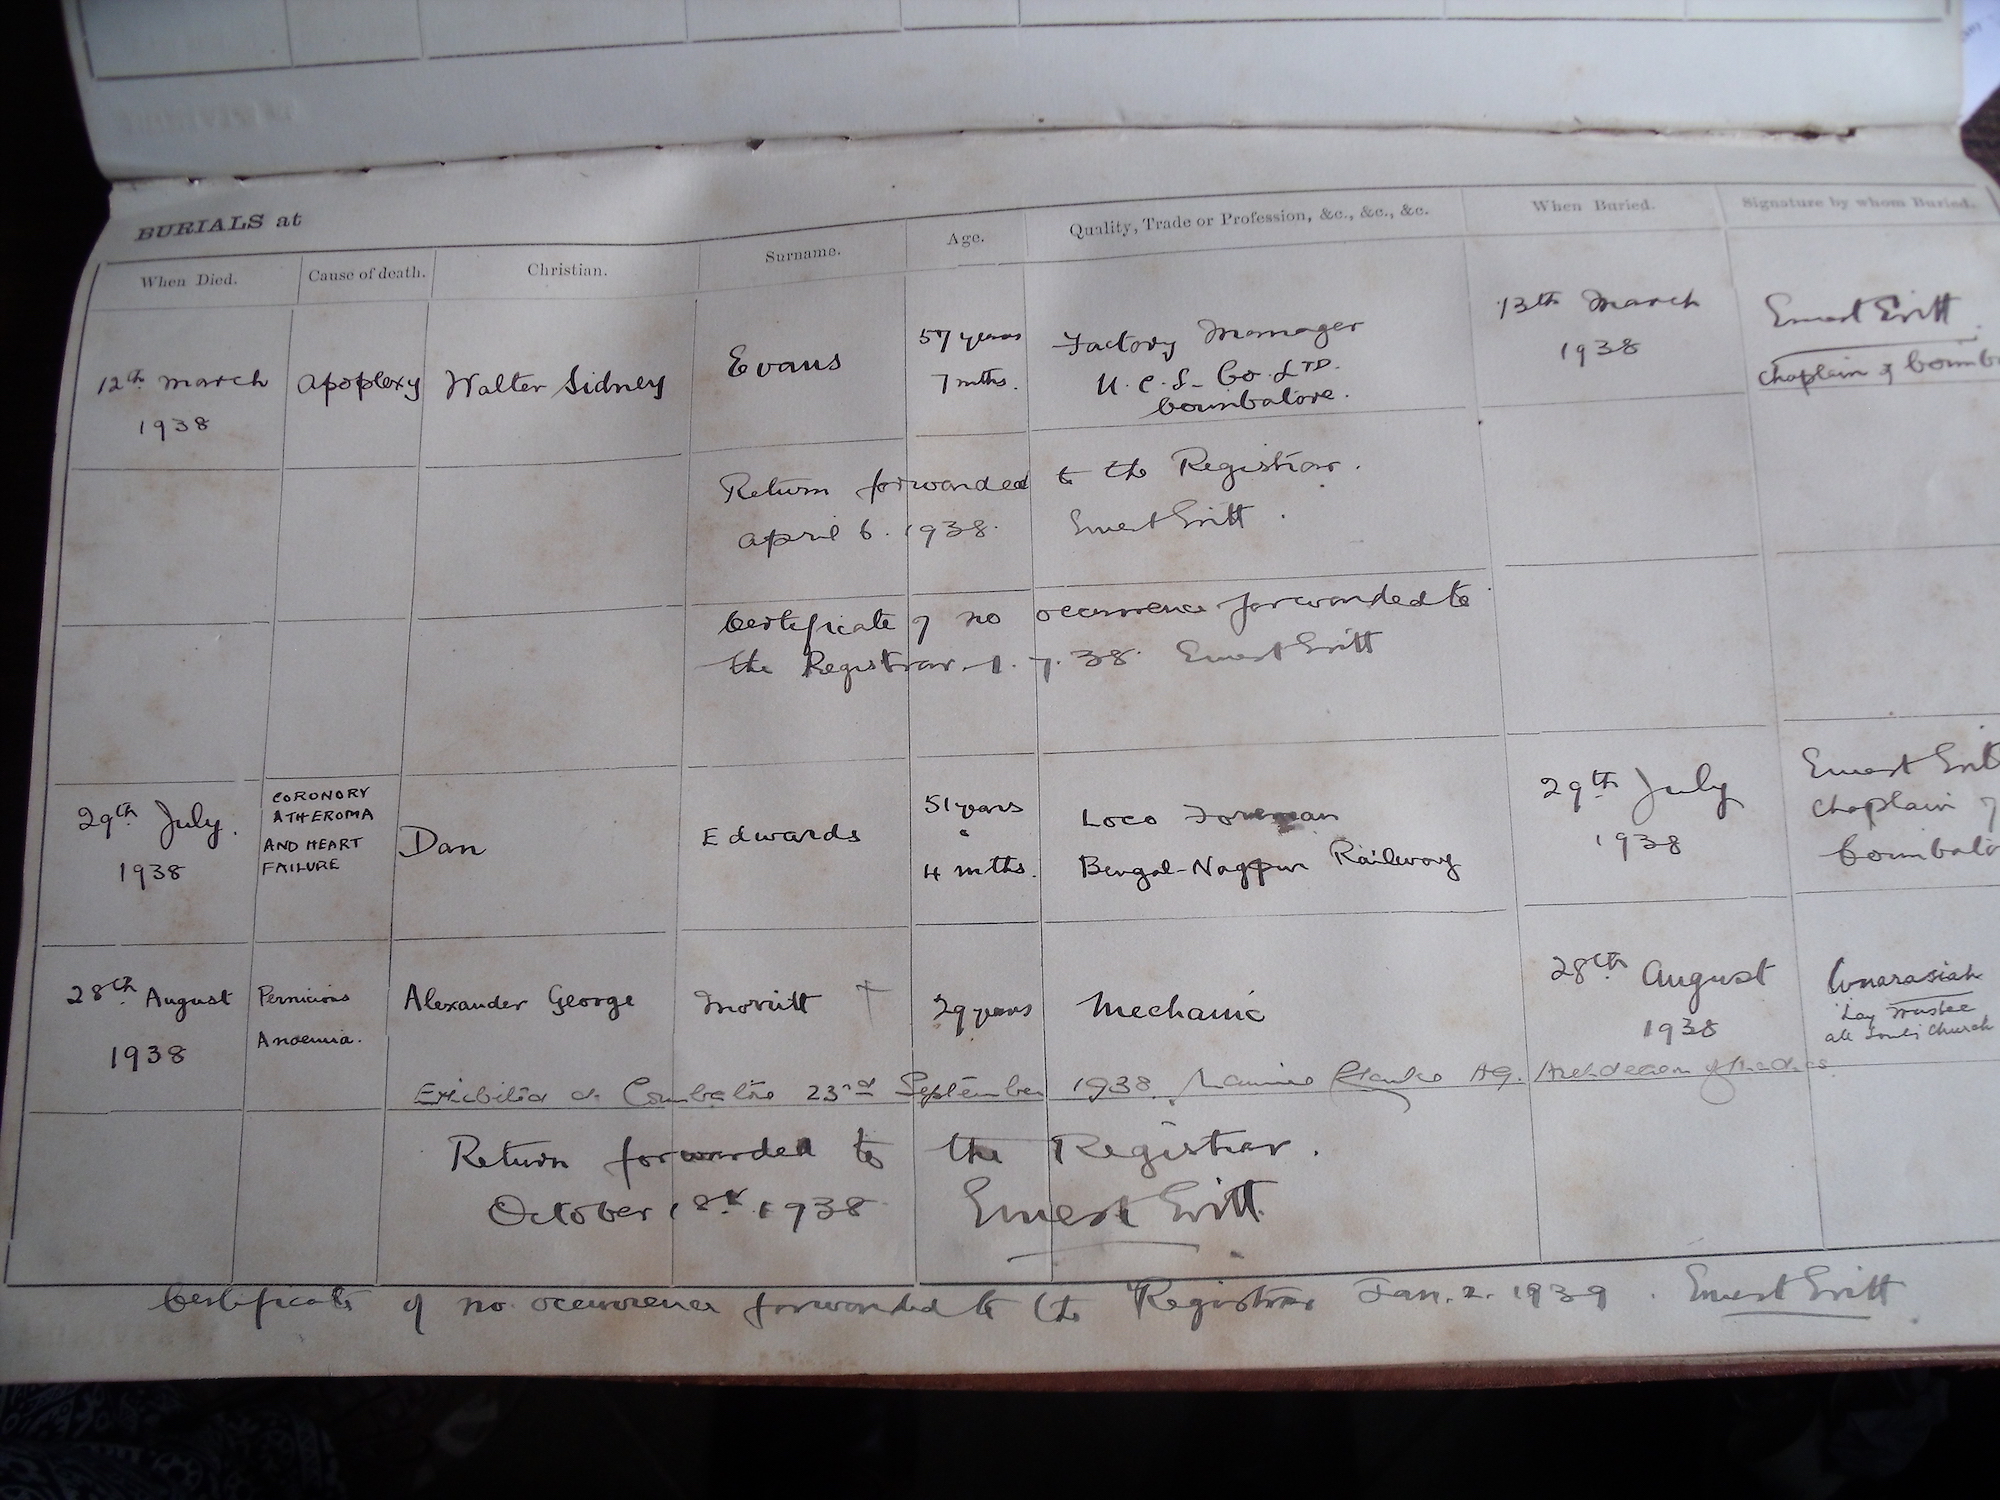 BURIALS at
When Died.
Cause of death.
Christian.
Surname.
Age.
Quality, Trade or Profession, &c., &c., &c.
When Buried.
Signature by whom Buried.
12th March
1938
Apoplexy
Walter Sidney
Evans
57 years
7 mths.
Factory Manager
U.C.S. Co. LTD.
Coimbatore.
13th March
1938
Ernest Evitt
Chaplain of Coimb
Return forwarded to the Registrar.
April 6. 1938. Ernest Evitt.
Certificate of no occurrence forwarded to
the Registrar. 1. 7. 38. Ernest Evitt
29th July.
1938
CORONORY
ATHEROMA
AND HEART
FAILURE
Dan
Edwards
51 years
4 mths.
Loco Foreman
Bengal-Nagpur Railway
29th July
1938
Ernest Evit
Chaplain of
Coimbato
28th August
1938
Pernicious
Anoemia.
Alexander George
29 years
Mechanic
28th August
1938
Lay Trustee
All Souls Church
Exhibited at Coimbatore 23rd September 1938 Ag. Archdeacon of Madras.
Return forwarded to the Registrar.
October 18th 1938 Ernest Evitt.
Certificate of no occurrence forwarded to the Registrar Jan. 2. 1939. Ernest Evitt